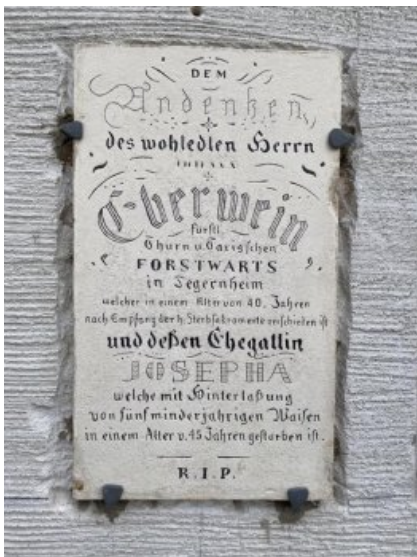 DEM
Andenken
des wohledlen Herrn
Eberwein
fürstl.
Thurn u. Taxisschen
FORSTWARTS
in Tegernheim
welcher in einem Alter von 40. Jahren
nach Empfang der h. Sterbsakramente verschieden ist
und deßen Ehegattin
JOSEPHA
welche mit Hinterlaßung
von fünf minderjährigen Waisen
in einem Alter v. 45 Jahren gestorben ist.
R.I.P.